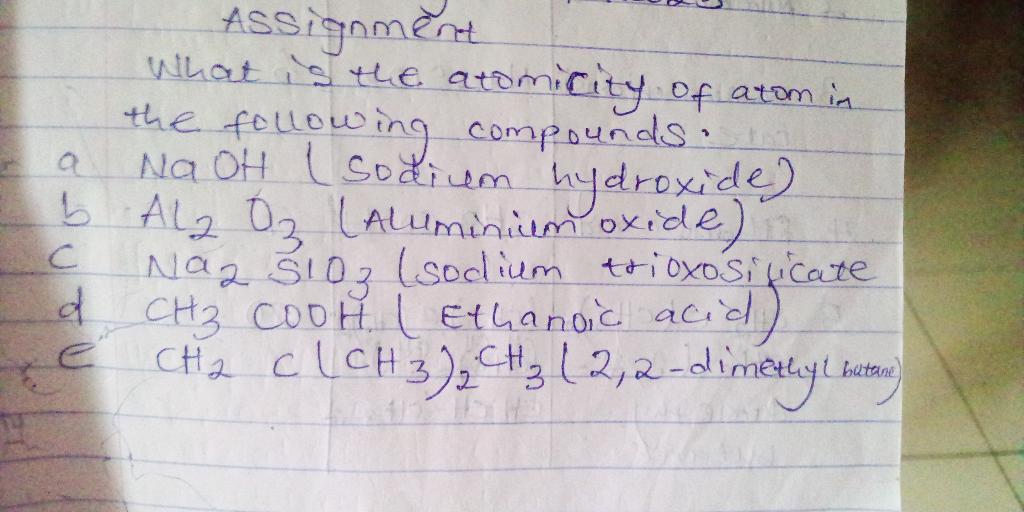 Assignment
What is the atomicity of atom in
the following compounds.
a NaOH (Sodium hydroxide)
b Al2 O3 (Aluminium oxide)
c Na2 SiO3 (sodium trioxosilicate)
d CH3 COOH (Ethanoic acid)
e CH2 C(CH3)2 CH3 (2,2-dimethyl butane)